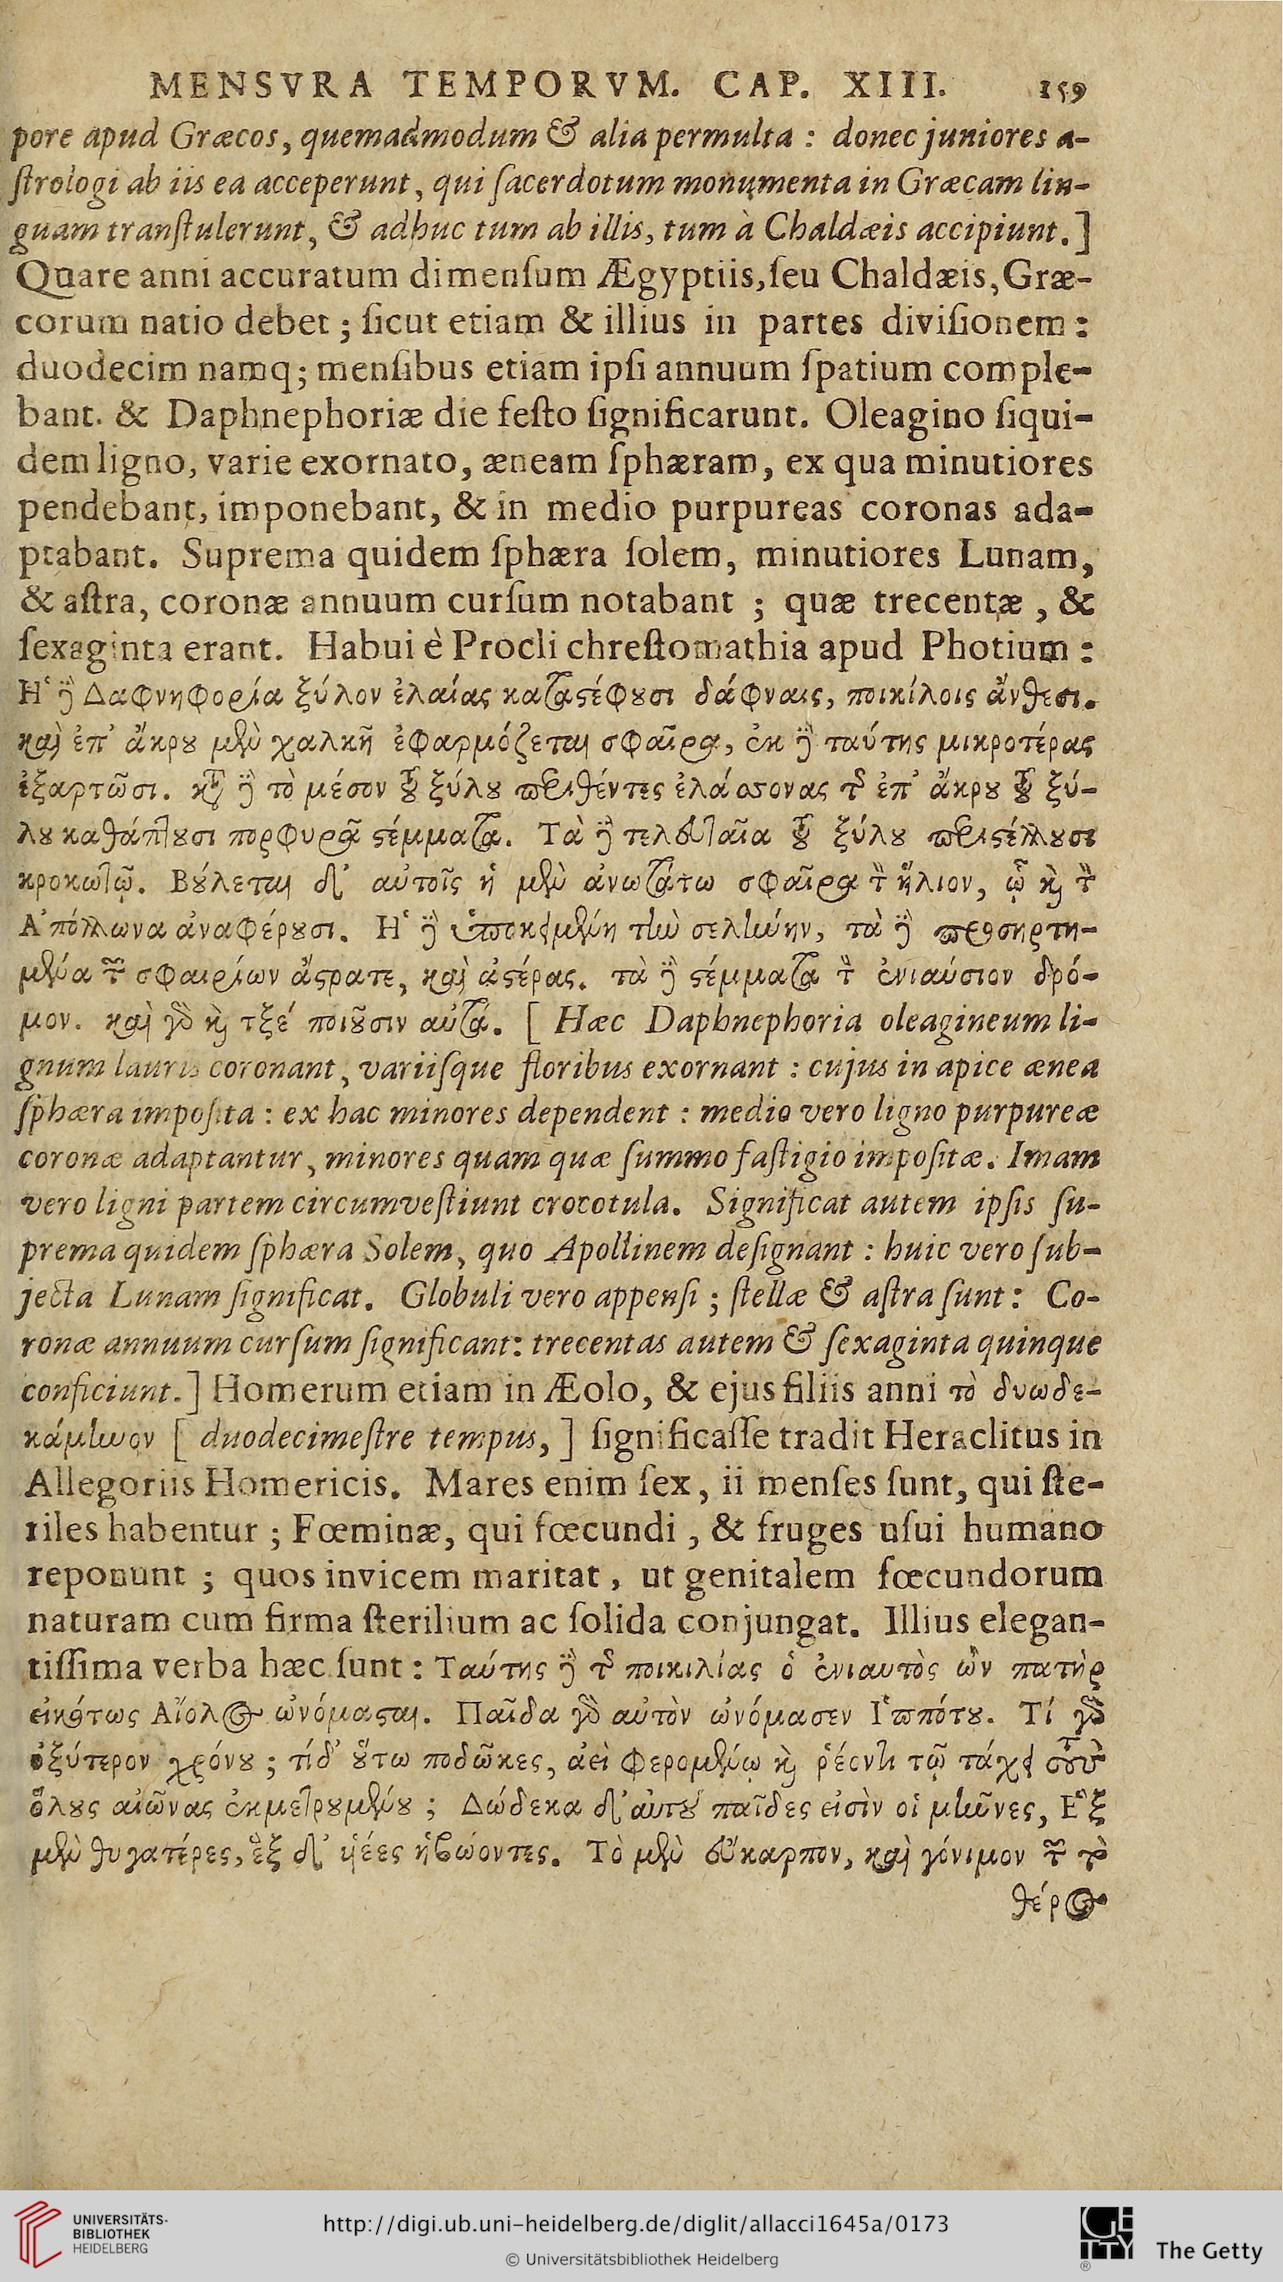 MENSVRA TEMPORVM. CAP. XIII. 159
pore apud Græcos, quemadmodum & alia permulta : donec juniores a-
ſtrologi ab iis ea acceperunt, qui ſacerdotum monumenta in Græcam lin-
guam tranſtulerunt, & adhuc tum ab illis, tum à Chaldæis accipiunt.]
Quare anni accuratum dimenſum Ægyptiis, ſeu Chaldæis, Græ-
corum natio debet ; ſicut etiam & illius in partes diviſionem :
duodecim namq; menſibus etiam ipſi annuum ſpatium comple-
bant. & Daphnephoriæ die feſto ſignificarunt. Oleagino ſiqui-
dem ligno, varie exornato, æneam ſphæram, ex qua minutiores
pendebant, imponebant, & in medio purpureas coronas ada-
ptabant. Suprema quidem ſphæra ſolem, minutiores Lunam,
& aſtra, coronæ annuum curſum notabant ; quæ trecentæ , &
ſexaginta erant. Habui è Procli chreſtomathia apud Photium :
Η῾ δὲ Δαφνηφορία ξύλον ἐλαίας καταστέφουσι δάφναις, ποικίλοις ἄνθεσι.
καὶ ἐπ' ἄκρου μὲν χαλκῆ ἐφαρμόζεται σφαῖρα, ἐκ δὲ ταύτης μικροτέρας
ἐξαρτῶσι. κτ̃ δὲ τὸ μέσον τοῦ ξύλου περιθέντες ἐλάσσονας τῆς ἐπ' ἄκρου τοῦ ξύ-
λου καθάπτουσι πορφυρᾶ στέμματα. Τὰ δὲ τελευταῖα τοῦ ξύλου περιστέλλουσι
κροκωτῷ. Βούλεται δ' αὐτοῖς ἡ μὲν ἀνωτάτω σφαῖρα τὸν ἥλιον, ᾧ καὶ τὸν
Α᾿πόλλωνα ἀναφέρουσι. Η῾ δὲ ὑποκειμένη τὴν σελήνην, τὰ δὲ προσηρτη-
μένα τῶν σφαιρίων ἄστρατε, καὶ ἀστέρας. τὰ δὲ στέμματα τὸν ἐνιαύσιον δρό-
μον. καὶ γὰρ καὶ τξέ ποιοῦσιν αὐτά. [ Hæc Daphnephoria oleagineum li-
gnum lauris coronant, variiſque floribus exornant : cujus in apice ænea
ſphæra impoſita : ex hac minores dependent : medio vero ligno purpureæ
coronæ adaptantur, minores quam quæ ſummo faſtigio impoſitæ. Imam
vero ligni partem circumveſtiunt crocotula. Significat autem ipſis ſu-
prema quidem ſphæra Solem, quo Apollinem deſignant : huic vero ſub-
jecta Lunam ſignificat. Globuli vero appenſi ; ſtellæ & aſtra ſunt : Co-
ronæ annuum curſum ſignificant: trecentas autem & ſexaginta quinque
conficiunt.] Homerum etiam in Æolo, & ejus filiis anni τὸ δυωδε-
κάμηνον [ duodecimeſtre tempus, ] ſignificaſſe tradit Heraclitus in
Allegoriis Homericis. Mares enim ſex, ii menſes ſunt, qui ſte-
riles habentur ; Fœminæ, qui fœcundi , & fruges uſui humano
reponunt ; quos invicem maritat , ut genitalem fœcundorum
naturam cum firma ſterilium ac ſolida conjungat. Illius elegan-
tiſſima verba hæc ſunt : Ταύτης δὲ τῆς ποικιλίας ὁ ἐνιαυτὸς ὢν πατὴρ
εἰκότως Αἴολος ὠνόμασται. Παῖδα γὰρ αὐτὸν ὠνόμασεν Ι῾ππότου. Τί γὰρ
ὀξύτερον χρόνου ; τίδ' οὕτω ποδῶκες, ἀεὶ φερομένῳ καὶ ῥέοντι τῷ τάχει τοὺς
ὅλους αἰῶνας ἐκμετρουμένου ; Δώδεκα δ' αὐτοῦ παῖδες εἰσὶν οἱ μῆνες, Ε῞ξ
μὲν θυγατέρες, ἓξ δ' υἱέες ἡβώοντες. Τὸ μὲν εὔκαρπον, καὶ γόνιμον τῶν τὸ
θέρος
UNIVERSITÄTS-
BIBLIOTHEK
HEIDELBERG
http://digi.ub.uni-heidelberg.de/diglit/allacci1645a/0173
© Universitätsbibliothek Heidelberg
GETTY
The Getty